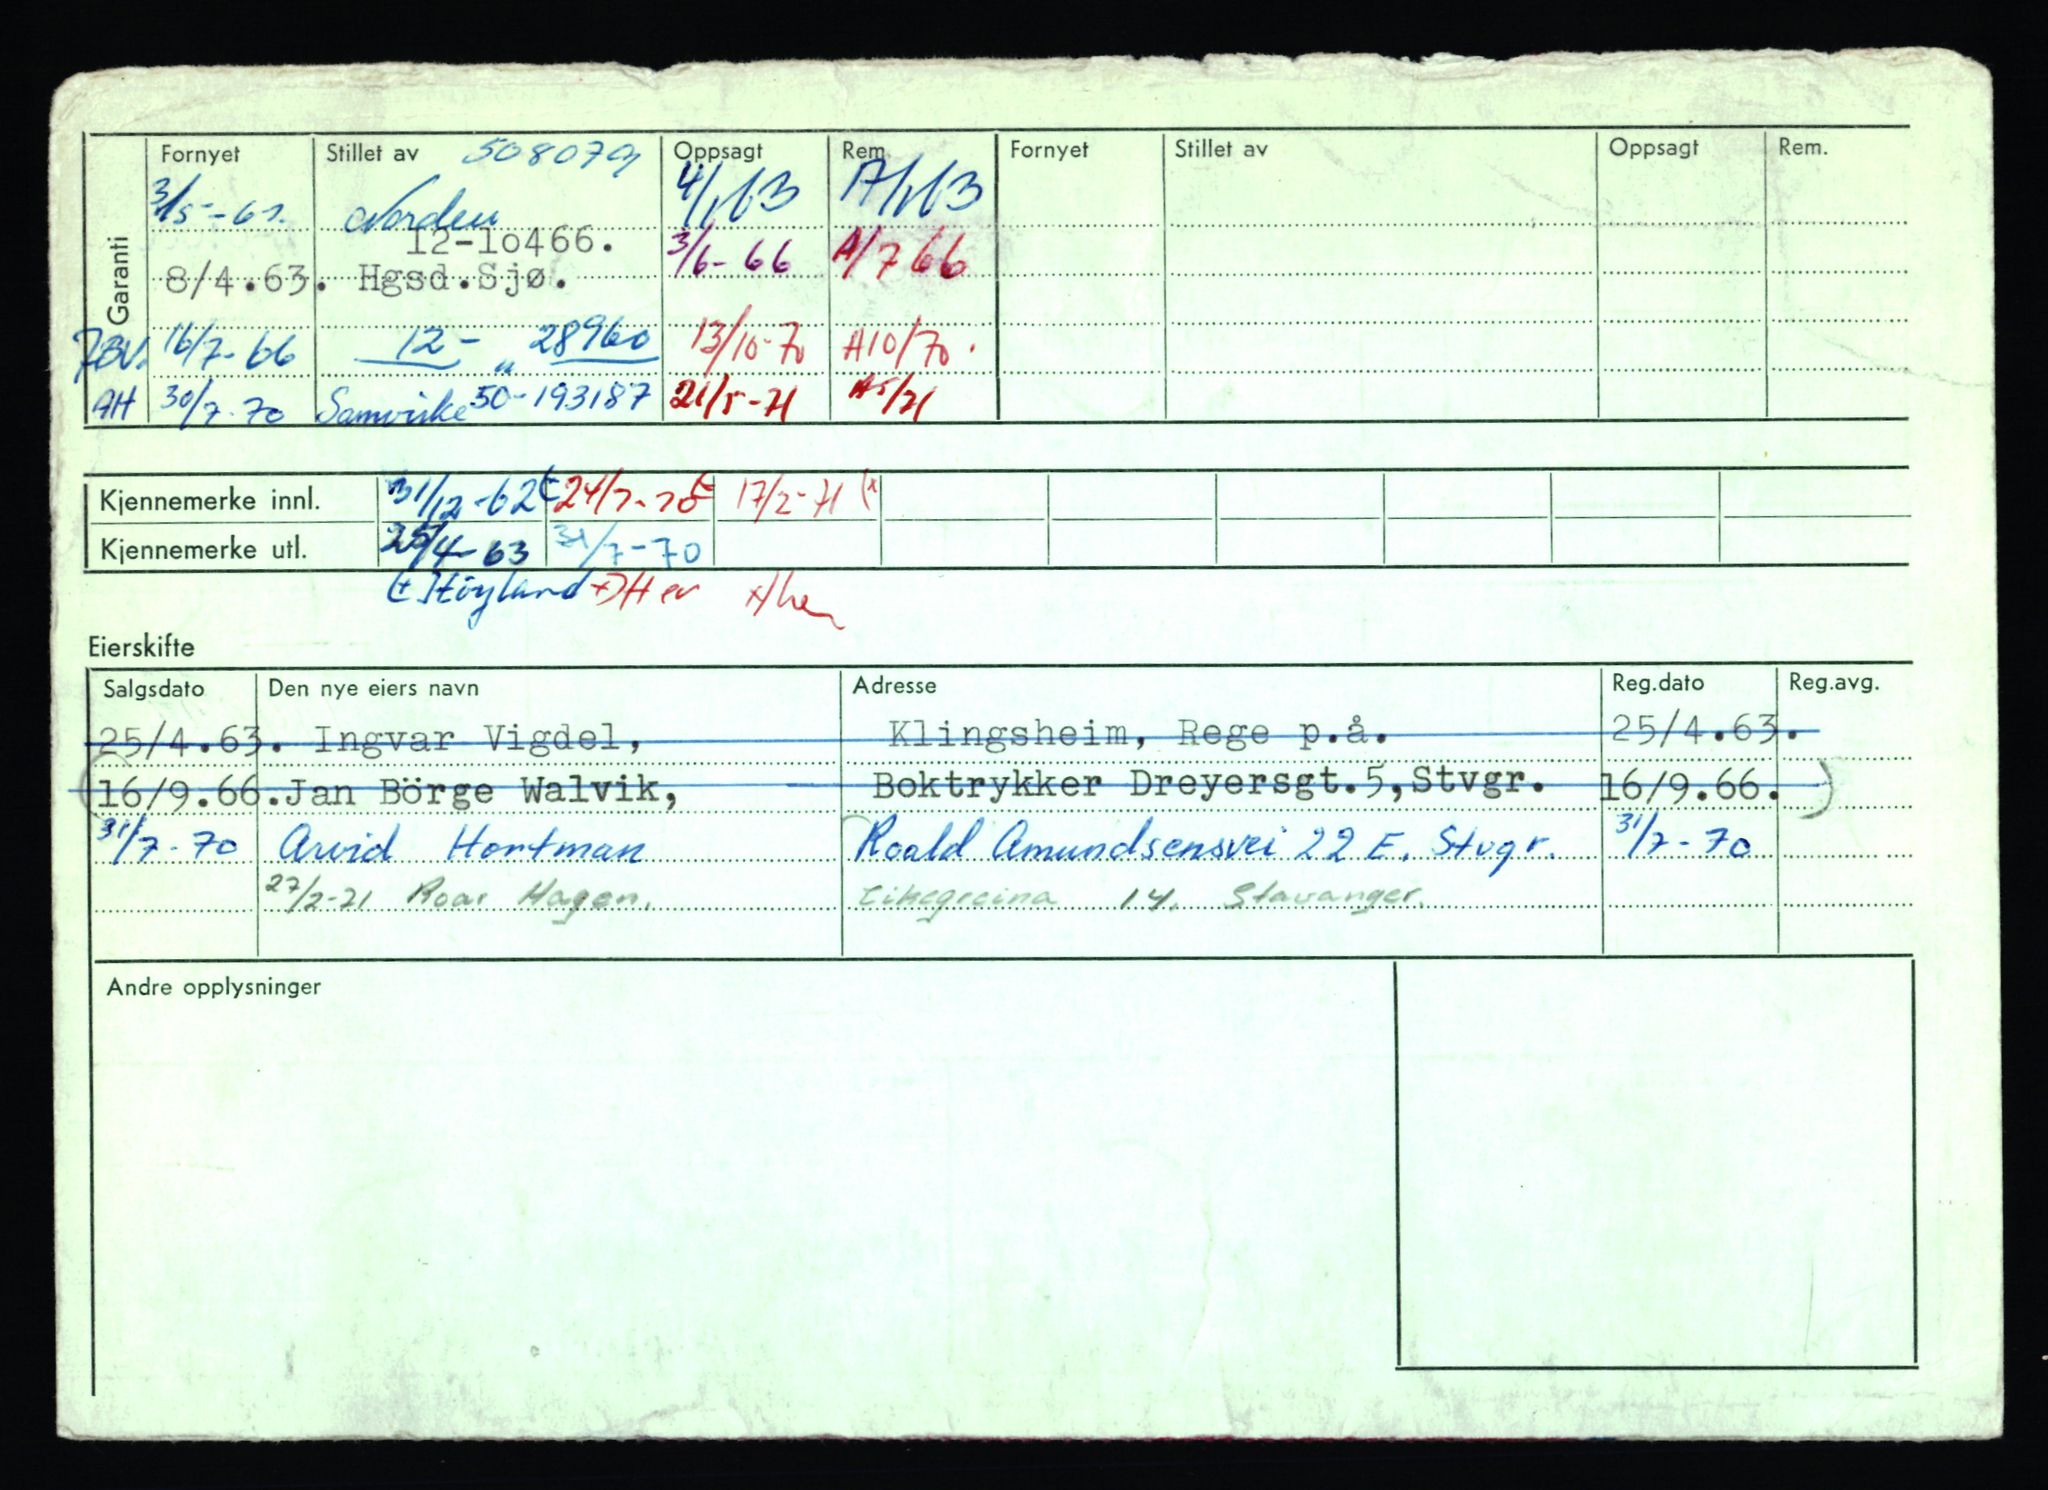 Garanti
Fornyet Stillet av 508079 Oppsagt Rem. Fornyet Stillet av Oppsagt Rem.
3/5-61. Norden 4/1 63 A/1 63
12-10466.
8/4.63. Hgsd.Sjø. 3/6-66 A/7 66
JBV. 16/7-66 12- „ 28960 13/10-70 A10/70.
AH 30/7-70 Samvirke 50-193187 21/5-71 A5/71
Kjennemerke innl. 31/12-62 24/7-70 17/2-71 (x
Kjennemerke utl. 25/4-63 31/7-70
Høyland +) Her x) her
Eierskifte
Salgsdato Den nye eiers navn Adresse Reg.dato Reg.avg.
25/4.63. Ingvar Vigdel, Klingsheim, Rege p.å. 25/4.63.
(16/9.66. Jan Börge Walvik, Boktrykker Dreyersgt.5,Stvgr. 16/9.66.)
31/7-70 Arvid Hortman Roald Amundsensvei 22 E. Stvgr. 31/7-70
27/2-71 Roar Hagen. 14. Stavanger.
Andre opplysninger